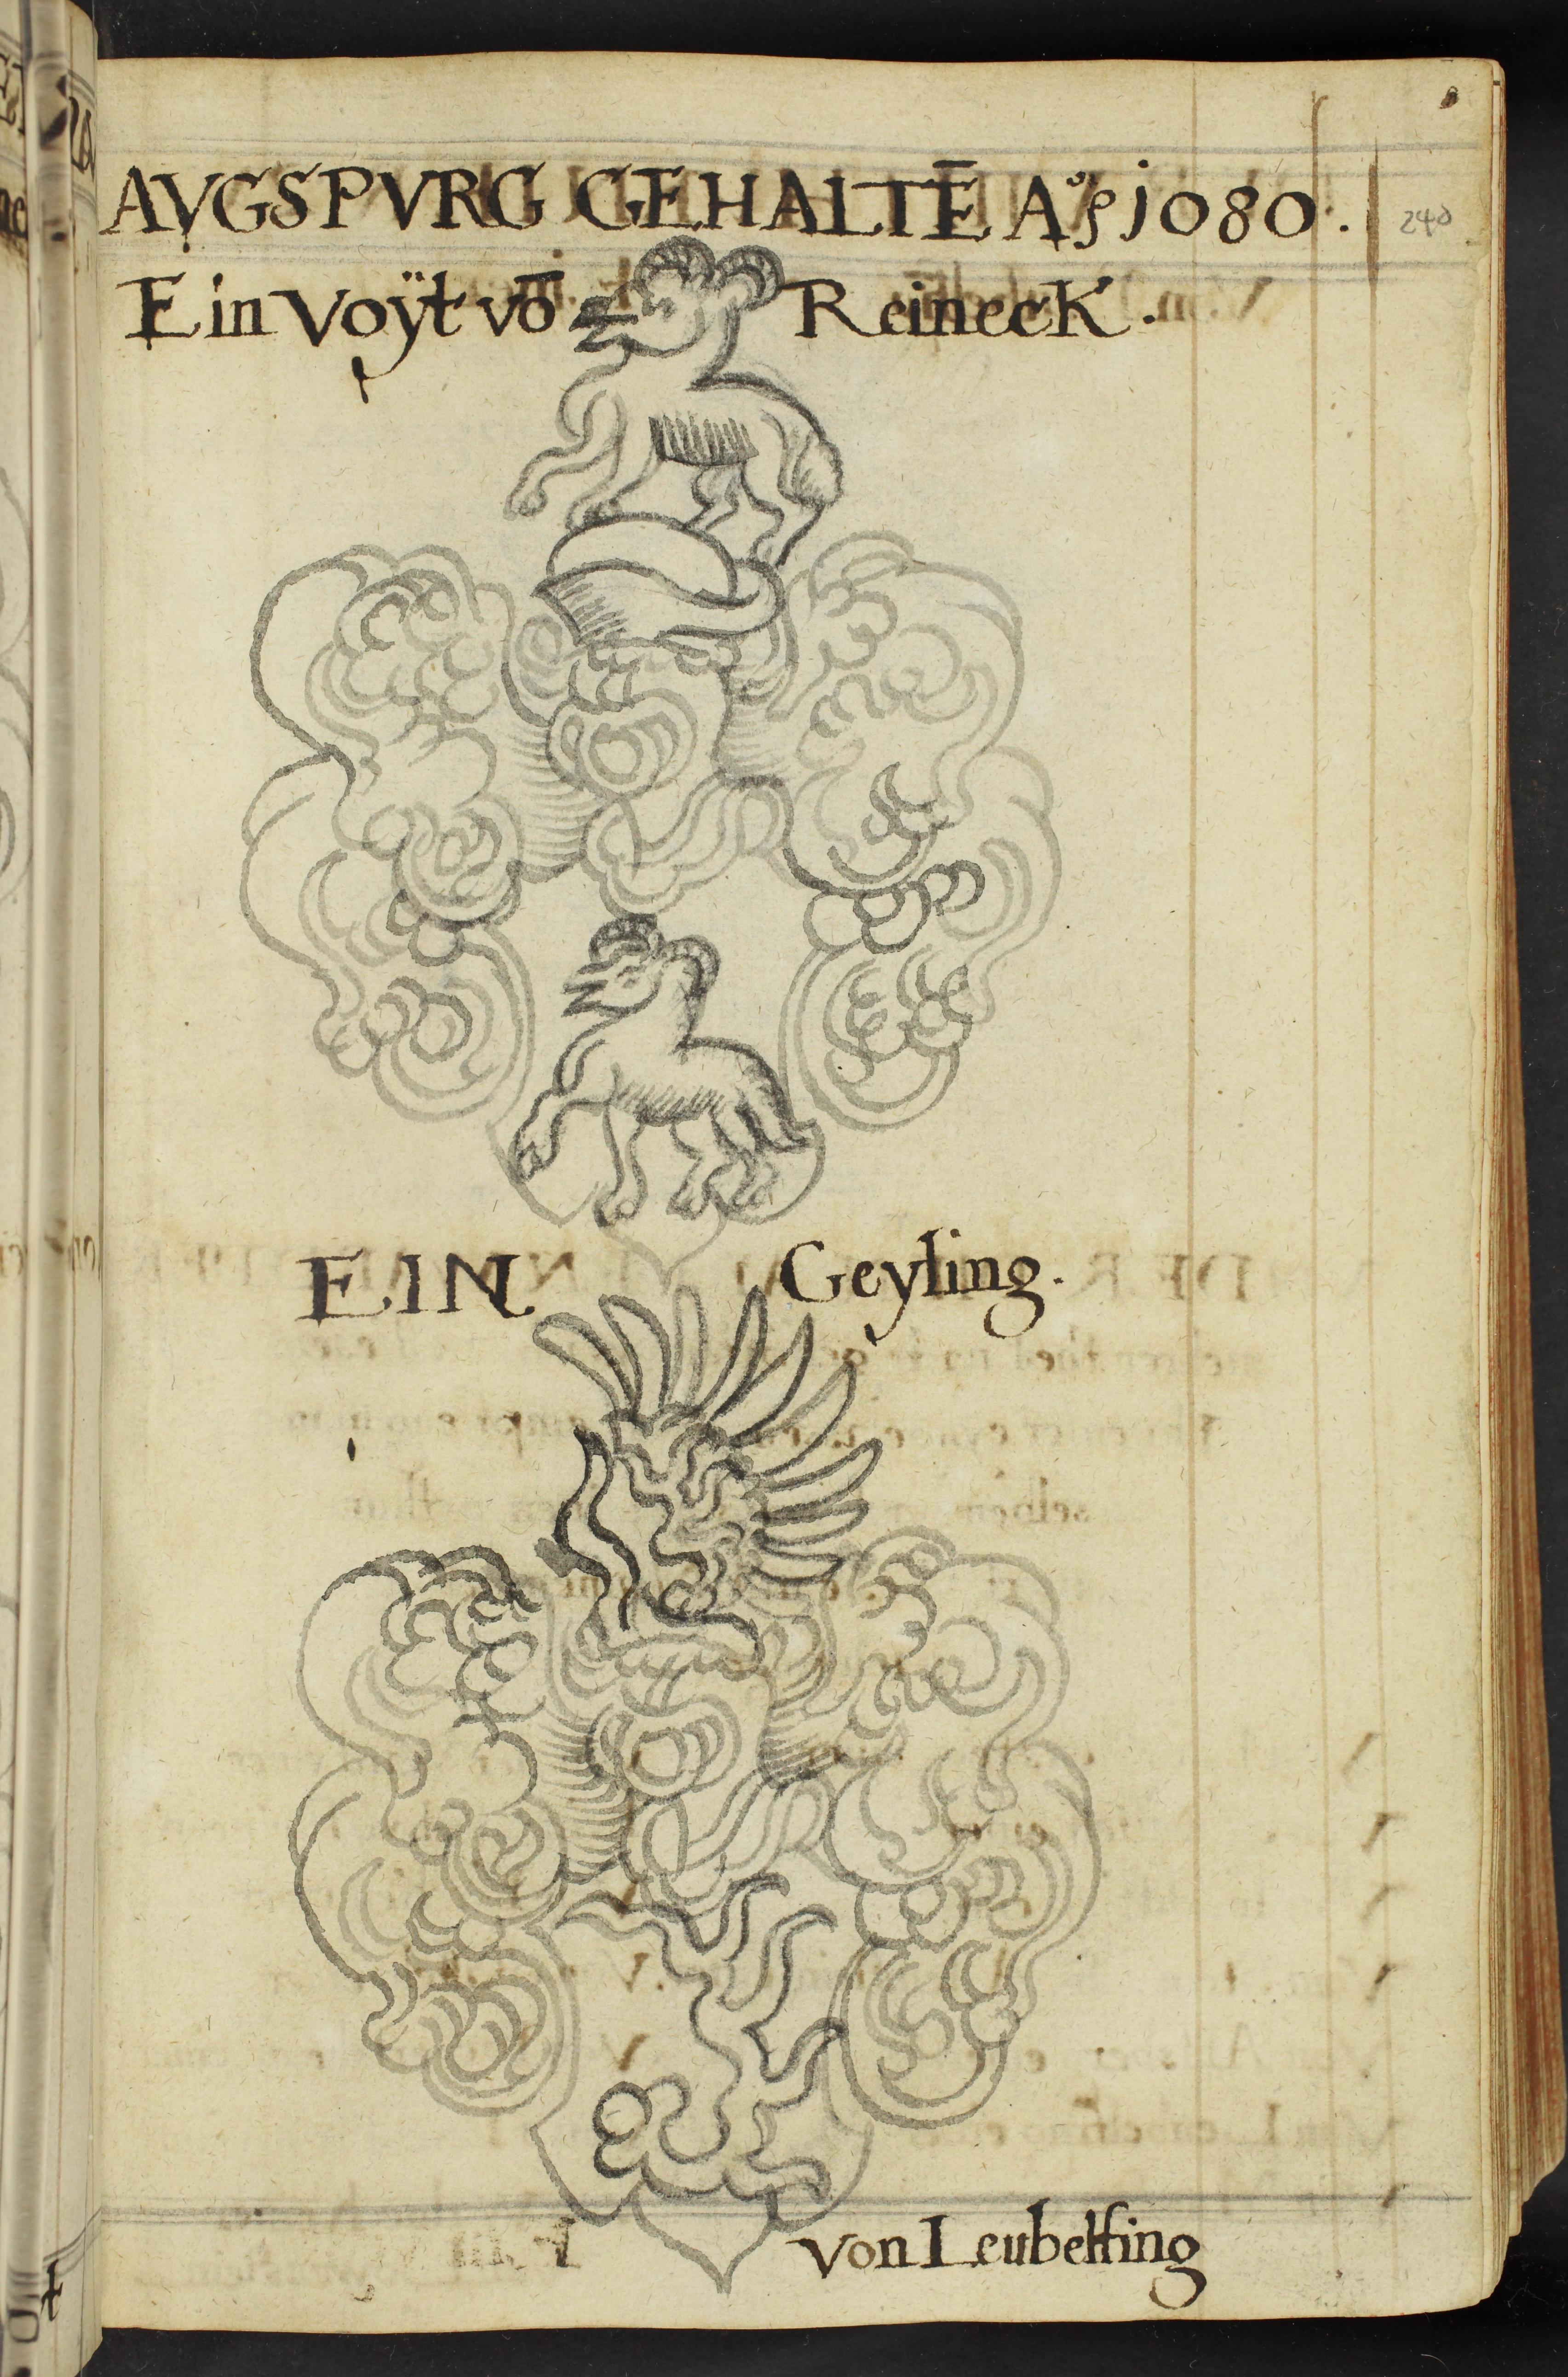 AVGSPVRG GEHALTĒ Aº j080.
240
Ein Voÿt vō Reineck.
EIN Geyling.
von Leubelfing